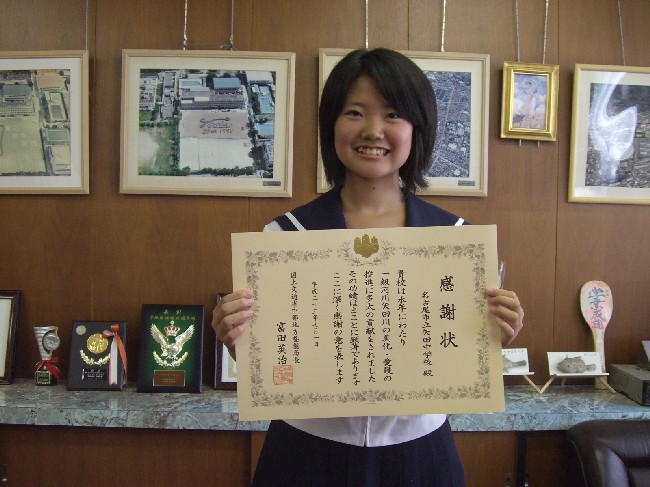 感謝状
名古屋市立矢田中学校 殿
貴校は永年にわたり
一級河川矢田川の美化・愛護の
推進に多大の貢献をされました
その功績はまことに顕著であります
ここに深く感謝の意を表します
国土交通省中部地方整備局長
富田英治